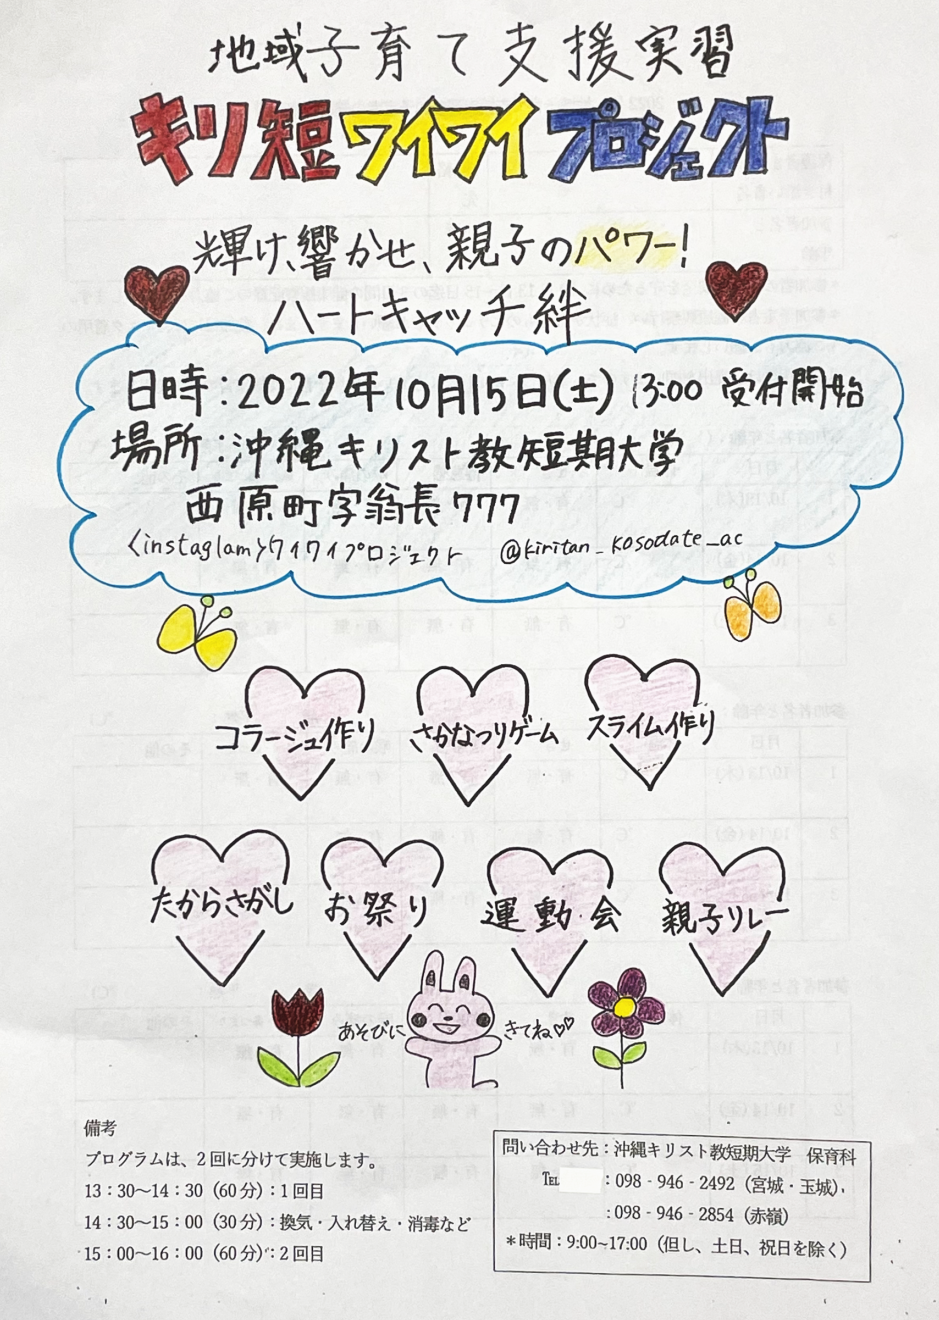 地域子育て支援実習
キリ短ワイワイプロジェクト
輝け、響かせ、親子のパワー!
ハートキャッチ絆
日時:2022年10月15日(土) 13:00 受付開始
場所:沖縄キリスト教短期大学
西原町字翁長777
〈instaglam〉ワイワイプロジェクト @kiritan_kosodate_ac
コラージュ作り さかなつりゲーム スライム作り
たからさがし お祭り 運動会 親子リレー
あそびに きてね♡♡
備考
プログラムは、2回に分けて実施します。
13:30～14:30(60分):1回目
14:30～15:00(30分):換気・入れ替え・消毒など
15:00～16:00(60分):2回目
問い合わせ先:沖縄キリスト教短期大学 保育科
℡ :098-946-2492(宮城・玉城)、
:098-946-2854(赤嶺)
*時間:9:00~17:00(但し、土日、祝日を除く)